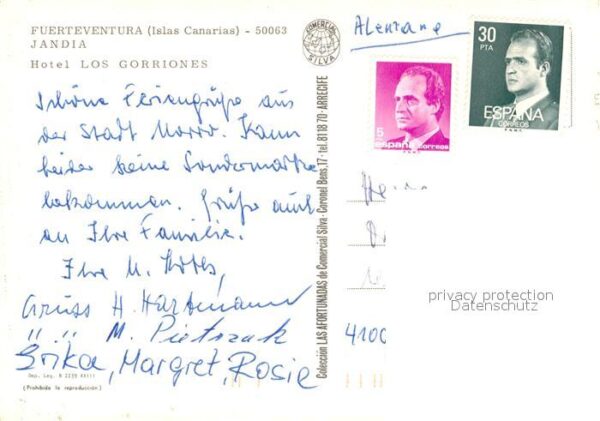 FUERTEVENTURA (Islas Canarias) - 50063
JANDIA
Hotel LOS GORRIONES
Schöne Feriengrüße aus
der Stadt Morro. Kann
leider keine Sondermarke
bekommen. Grüße auch
an Ihre Familie.
Ihre M.
Gruss H. Hartmann
" " M. Pietrzak
Erika, Margret, Rosie
Dep. Leg. B 2239 XXIII
(Prohibida la reproducción)
COMERCIAL
SILVA
Colección LAS AFORTUNADAS de Comercial Silva - Coronel Bens, 17 - tel. 81 18 70 - ARRECIFE
Alemania
5
españa correos
30
PTA
ESPAÑA
CORREOS
privacy protection
Datenschutz
4100